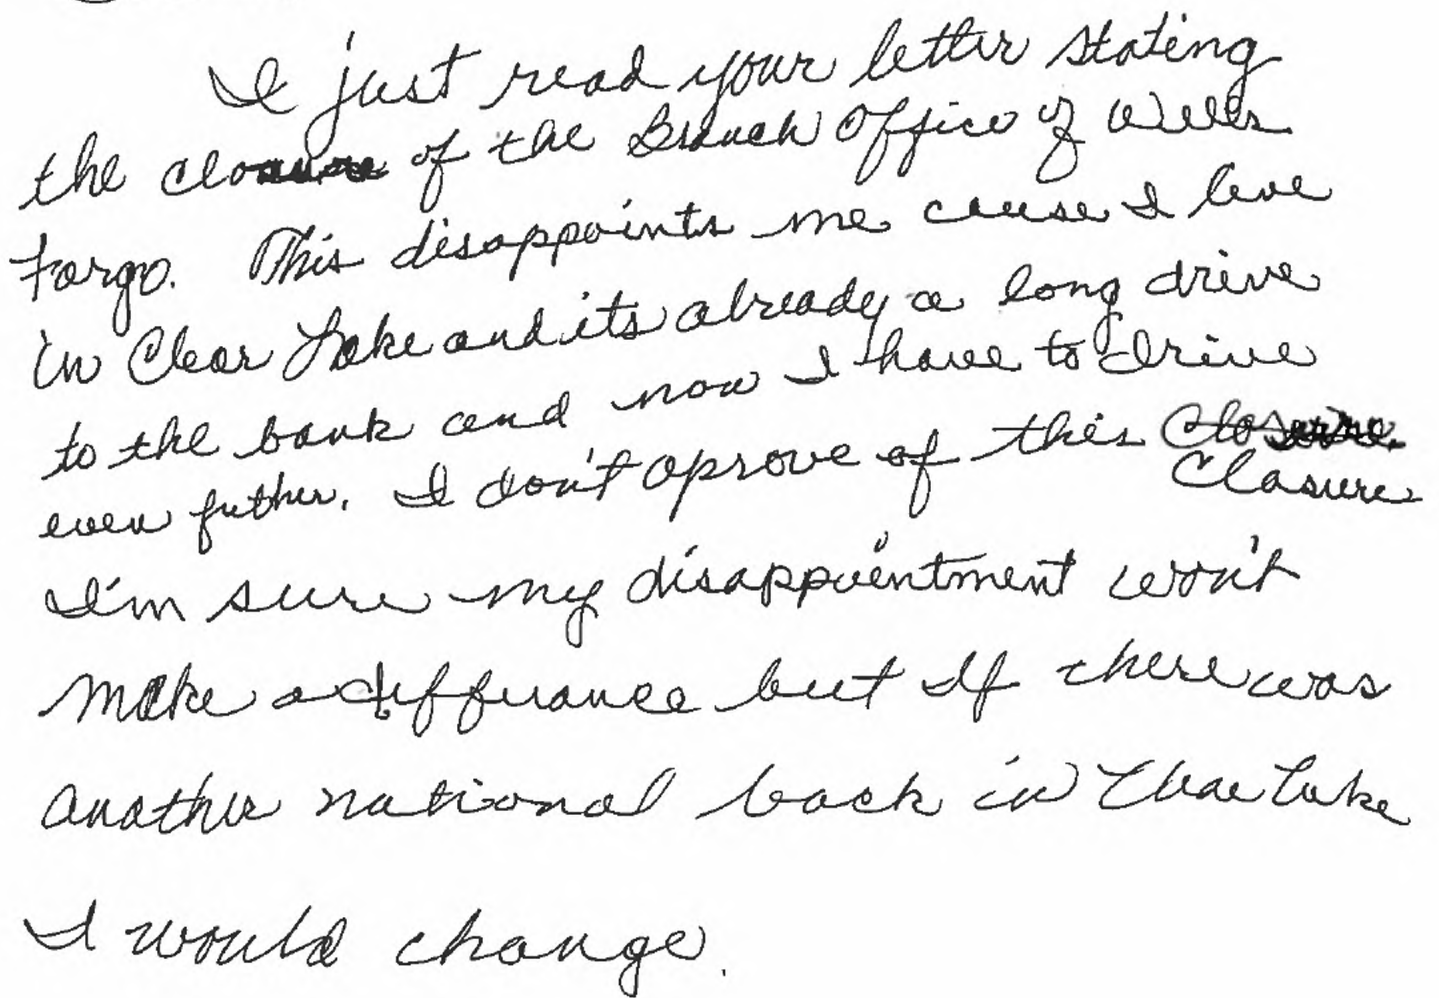 I just read your letter stating
the closure of the Branch Office of Wells
Fargo. This disappoints me cause I live
in Clear Lake and its already a long drive
to the bank and now I have to drive
even futher. I don't aprove of this
Closure
I'm sure my disappointment won't
make a differance but If there was
another national back in Clear Lake
I would change.